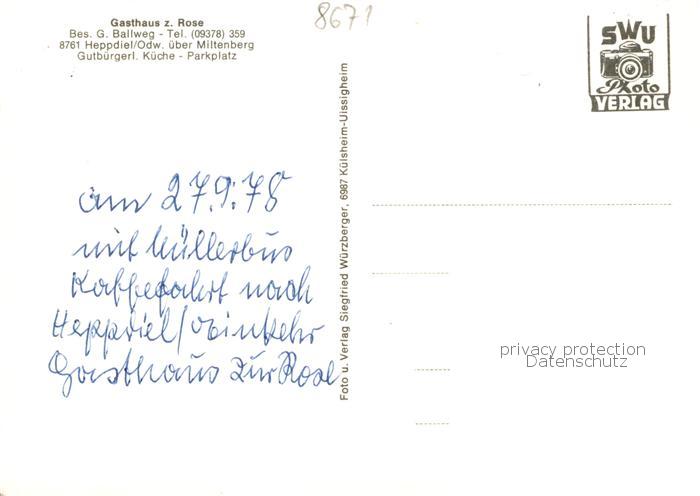 Gasthaus z. Rose
Bes. G. Ballweg - Tel. (09378) 359
8761 Heppdiel/Odw. über Miltenberg
Gutbürgerl. Küche - Parkplatz
8671
SWU
Photo
VERLAG
am 27.9.78
mit Müllerbus
Kaffefahrt nach
Heppdiel/Einkehr
Gasthaus zur Rose
Foto u. Verlag Siegfried Würzberger, 6987 Külsheim-Uissigheim
privacy protection
Datenschutz